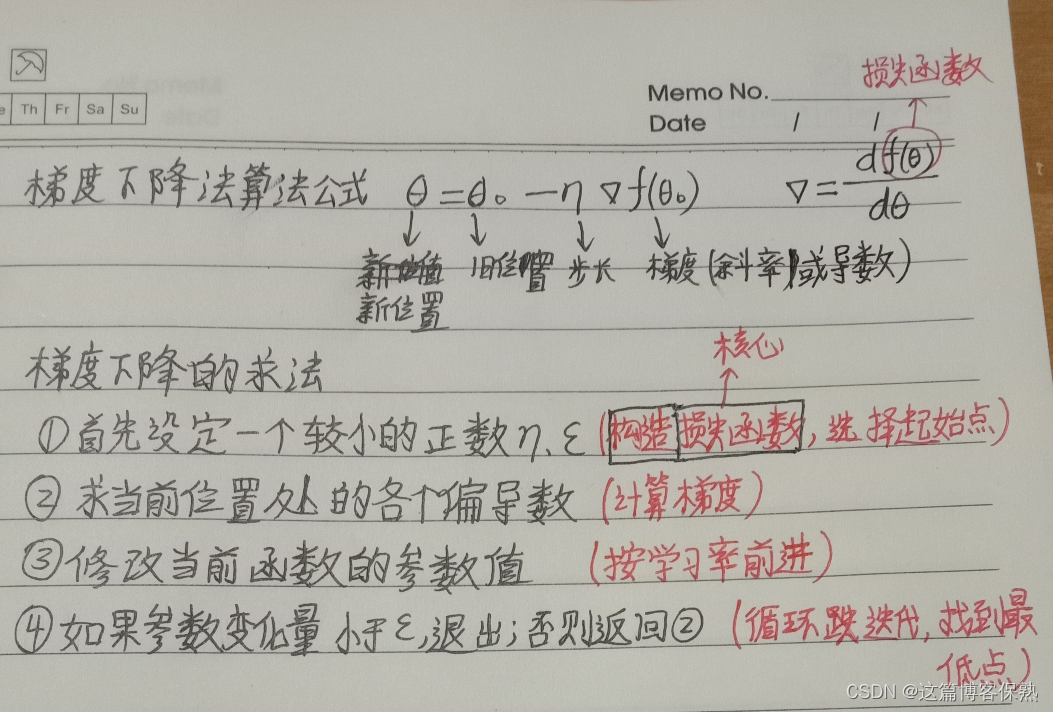 损失函数
Memo No.
Th Fr Sa Su
Date / /
梯度下降法算法公式 θ = θ₀ − η ∇ f(θ₀) ∇ = df(θ)/dθ
旧位置 步长 梯度(斜率或导数)
新位置
梯度下降的求法
核心
①首先设定一个较小的正数η、ε(构造损失函数,选择起始点)
②求当前位置处的各个偏导数(计算梯度)
③修改当前函数的参数值 (按学习率前进)
④如果参数变化量小于ε,退出;否则返回② (循环跌迭代,找到最
低点)
CSDN @这篇博客保熟